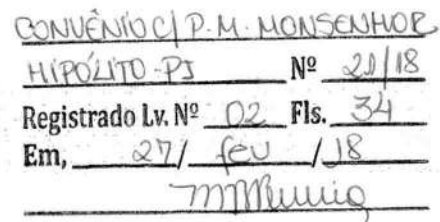 CONVÊNIO C/ P.M. MONSENHOR
HIPÓLITO-PI Nº 21/18
Registrado Lv. Nº 02 Fls. 34
Em, 27/ fev /18